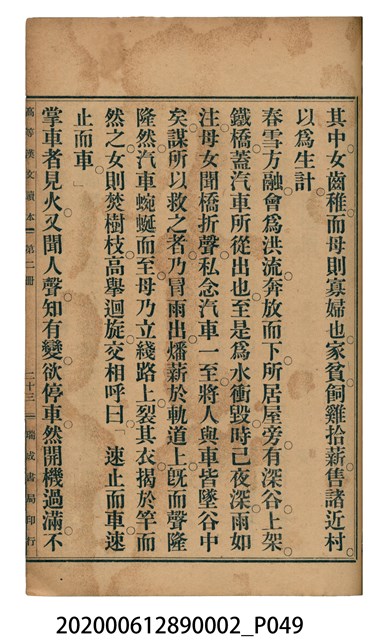 其中女齒稚而母則寡婦也。家貧飼雞拾薪售諸近村
以爲生計
春雪方融會爲洪流奔放而下所居屋旁有深谷上架
鐵橋蓋汽車所從出也至是爲水衝毀時已夜深雨如
注母女聞橋折聲私念汽車一至將人與車皆墜谷中
矣謀所以救之者乃冒雨出燔薪於軌道上旣而聲隆
隆然汽車蜿蜒而至母乃立綫路上裂其衣揭於竿而
然之女則焚樹枝高舉迴旋交相呼曰「速止而車速
止而車」
掌車者見火又聞人聲知有變欲停車然開機過滿不
高等漢文讀本 第二册 二十三 瑞成書局印行
202000612890002_P049